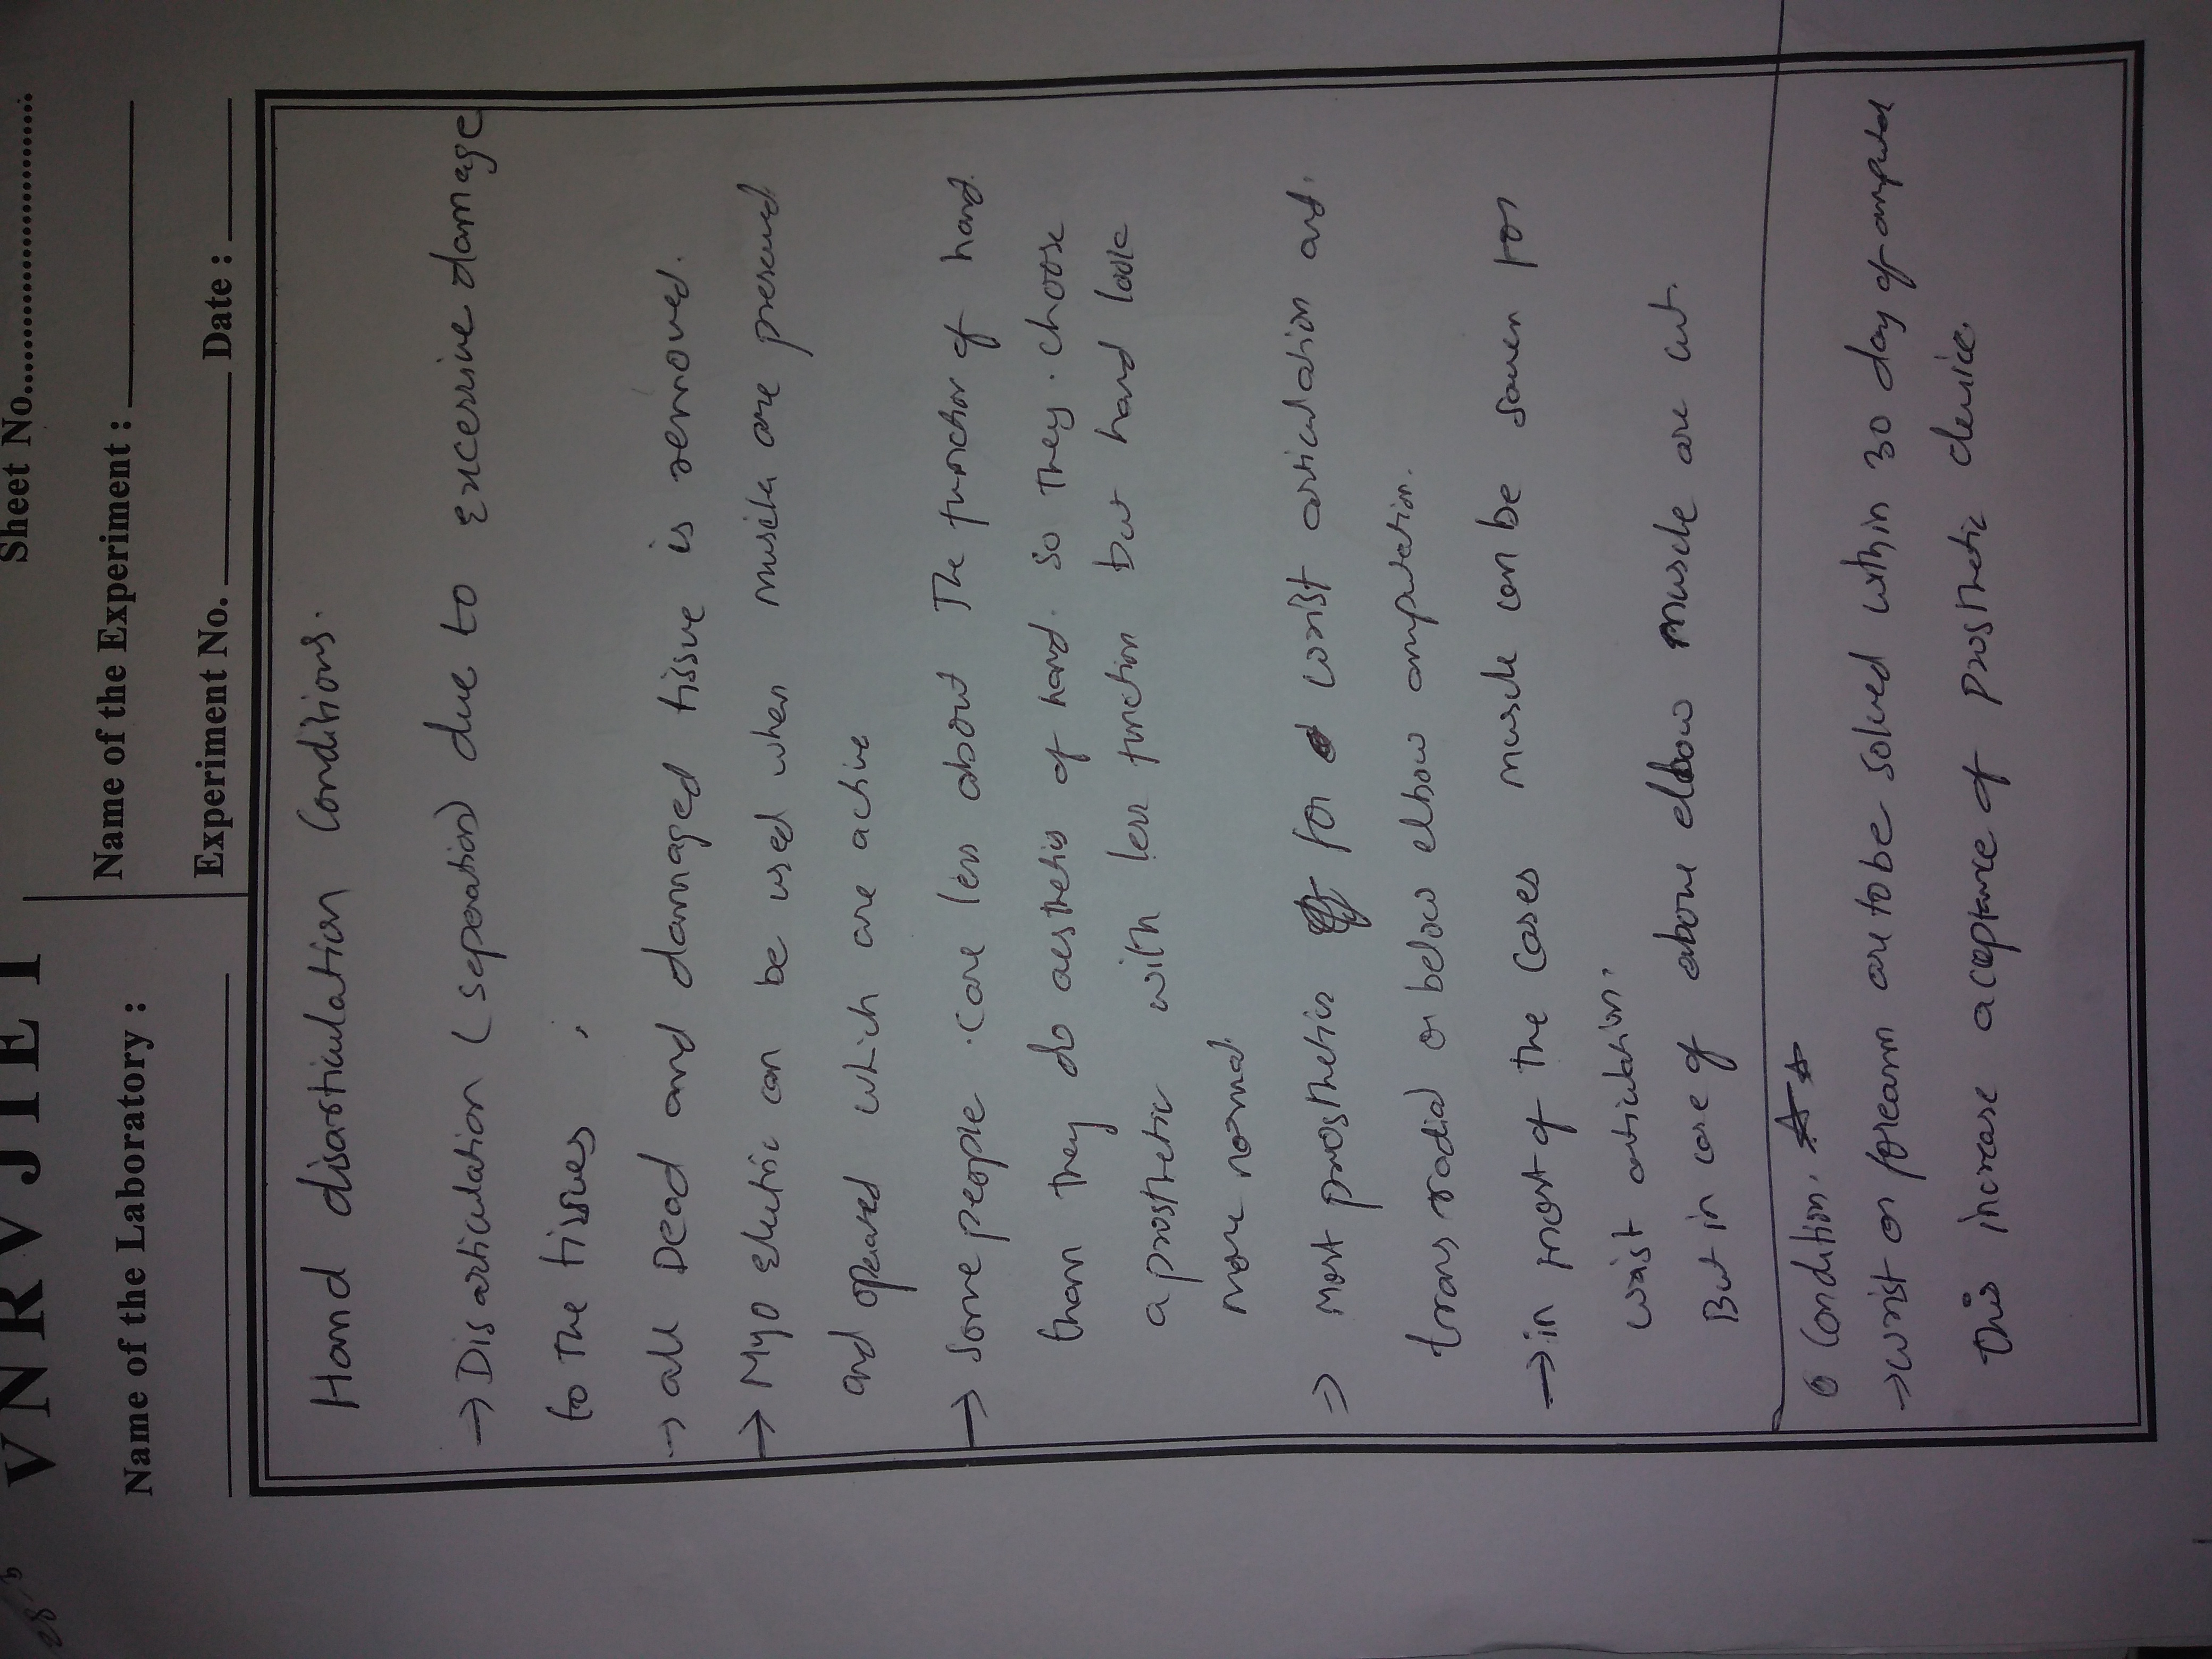 VNRVJIET
Sheet No.
Name of the Laboratory :
Name of the Experiment :
Experiment No. Date :
Hand disarticulation Conditions.
→ Disarticulation (seperation) due to excessive damage
to the tissues
→ all Dead and damaged tissue is removed.
→ Myo electric can be used when muscles are preserved
and operated which are active
→ Some people care less about The function of hand
than they do aesthetics of hand. so they choose
a prosthetic with less function but hand look
more normal.
⇒ Most prosthetics for wrist articulation and
trans radial or below elbow amputation.
→ in most of the Cases muscle can be saved for
wrist articulation.
But in case of above elbow muscle are cut.
Condition.
→ wrist or forearm are to be solved within 30 day of amputed
this increase acceptance of prosthetic device.